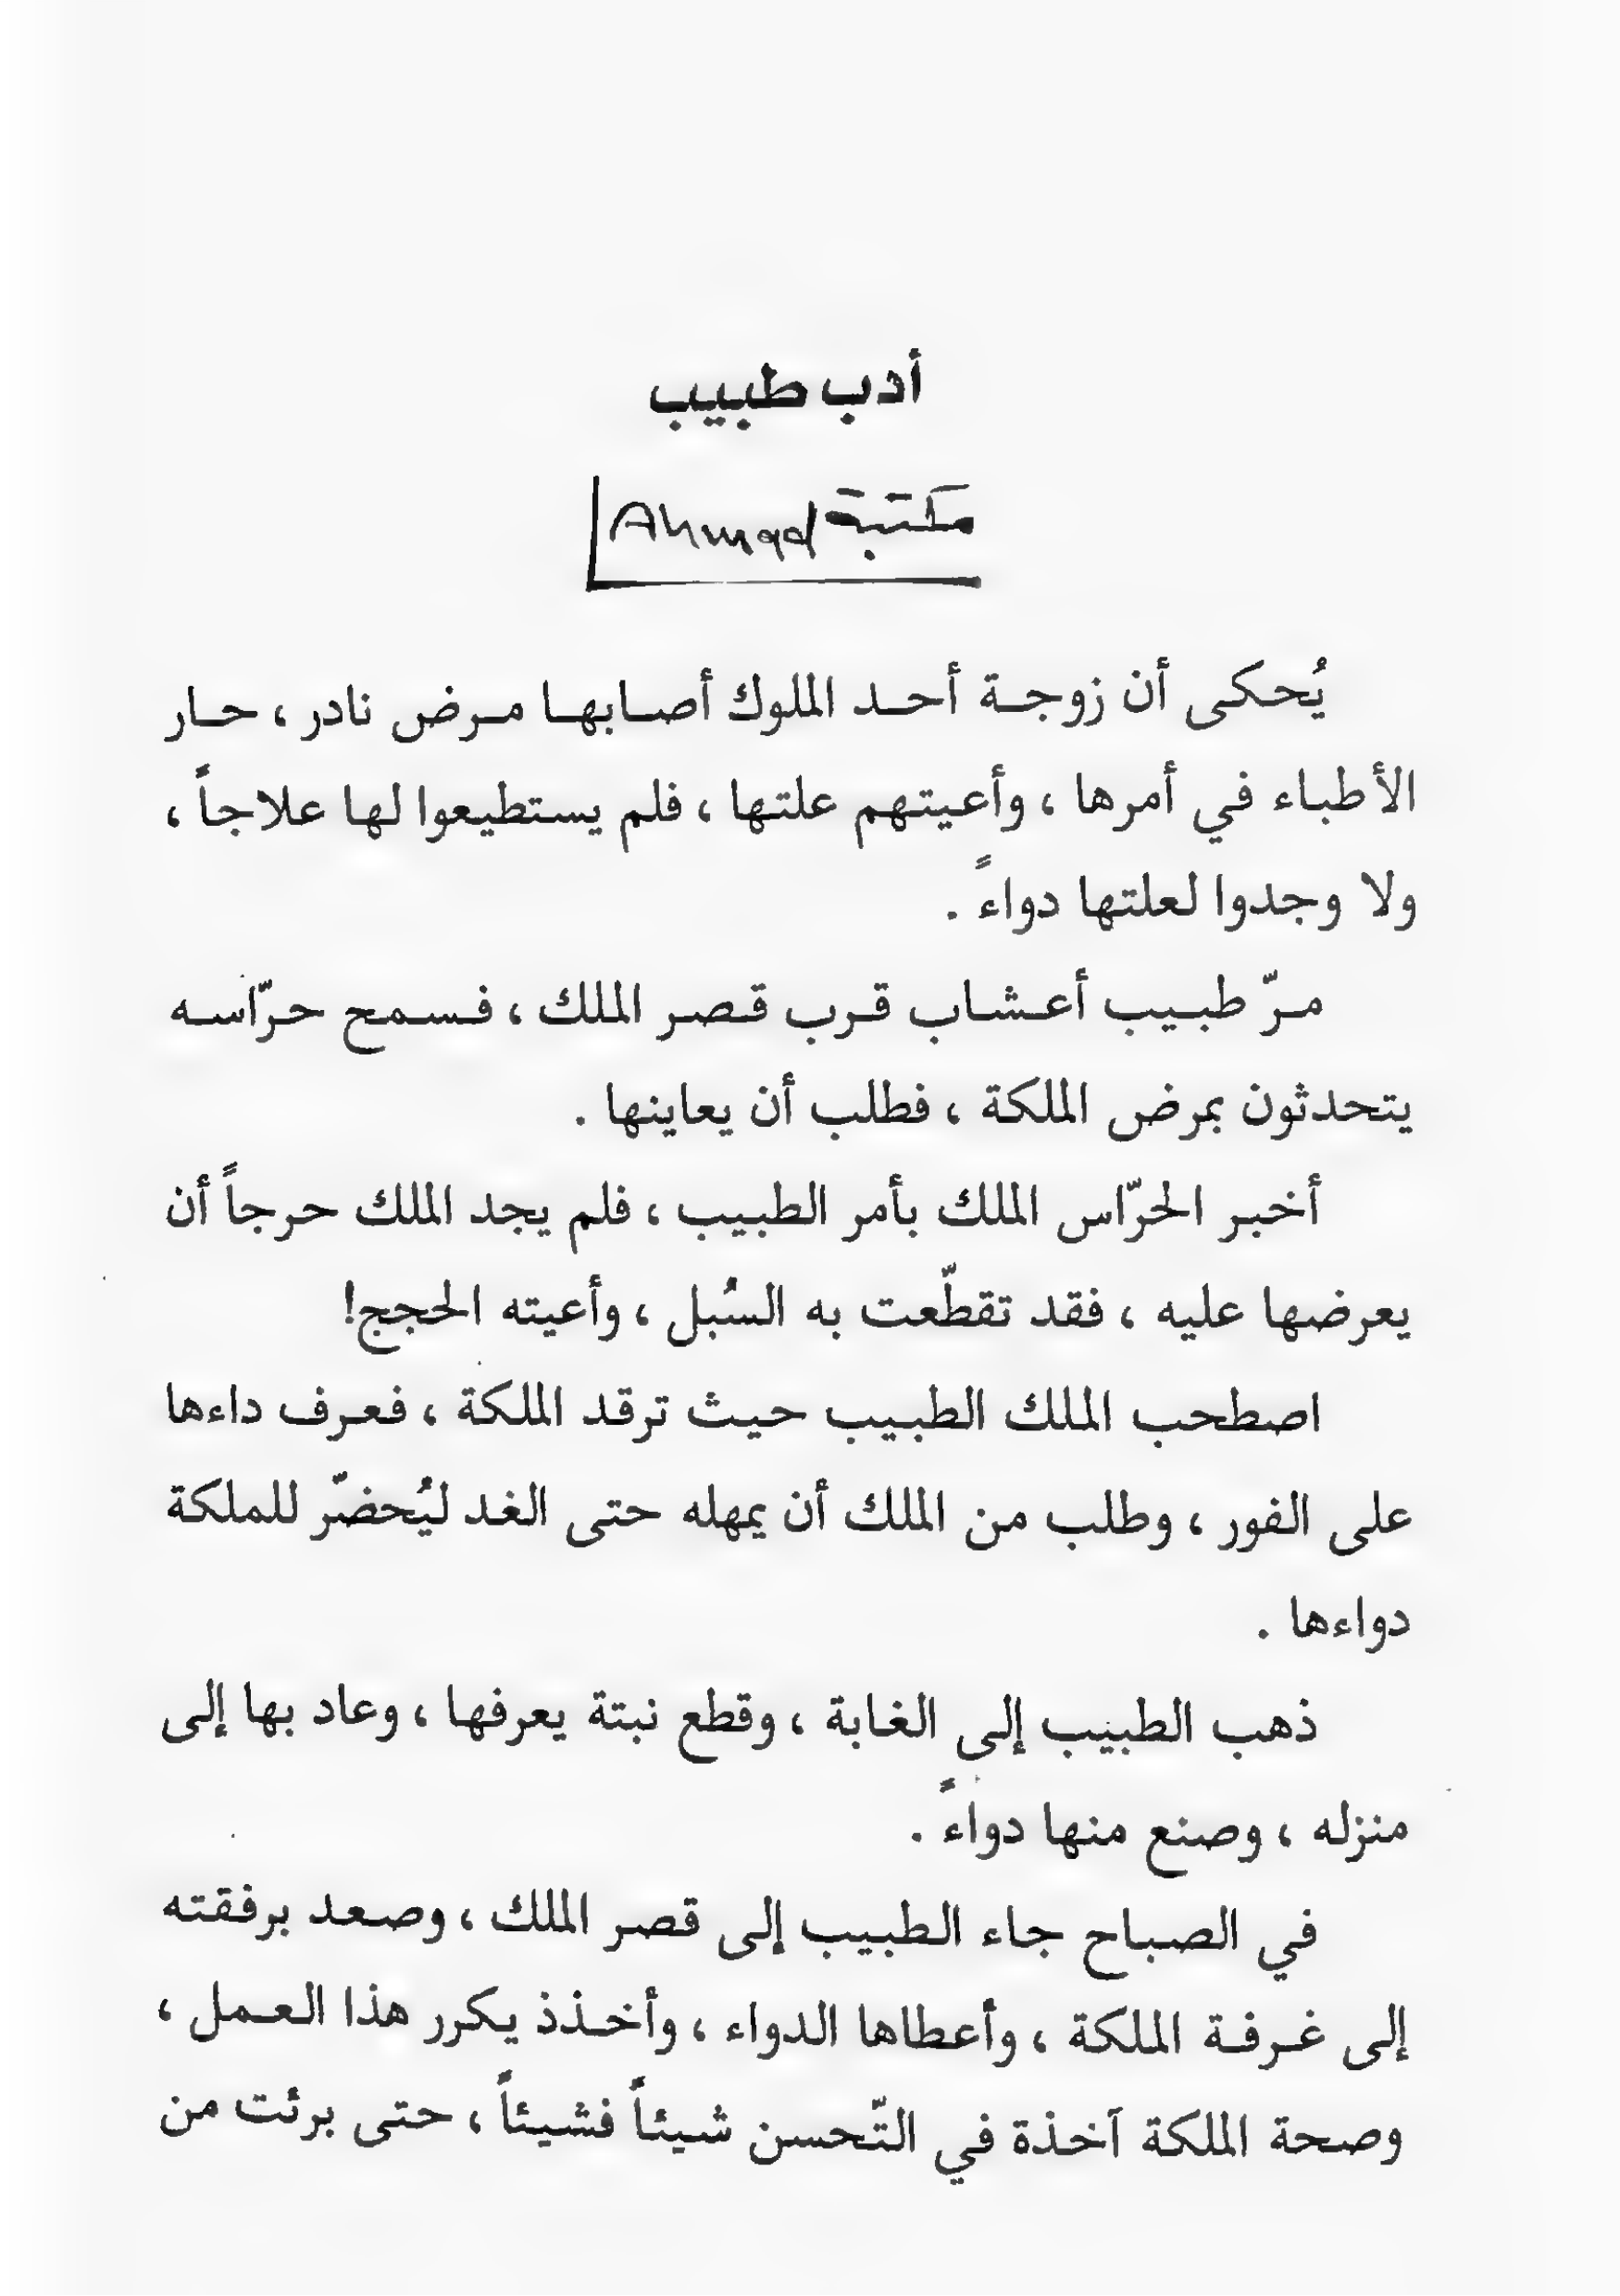 أدب طبيب
مكتبة Ahmad
يُحكى أن زوجة أحد الملوك أصابها مرض نادر ، حار
الأطباء في أمرها ، وأعيتهم علتها ، فلم يستطيعوا لها علاجاً ،
ولا وجدوا لعلتها دواءً .
مرّ طبيب أعشاب قرب قصر الملك ، فسمح حرّاسه
يتحدثون بمرض الملكة ، فطلب أن يعاينها .
أخبر الحرّاس الملك بأمر الطبيب ، فلم يجد الملك حرجاً أن
يعرضها عليه ، فقد تقطّعت به السُبل ، وأعيته الحجج!
اصطحب الملك الطبيب حيث ترقد الملكة ، فعرف داءها
على الفور ، وطلب من الملك أن يمهله حتى الغد ليُحضّر للملكة
دواءها .
ذهب الطبيب إلى الغابة ، وقطع نبتة يعرفها ، وعاد بها إلى
منزله ، وصنع منها دواءً .
في الصباح جاء الطبيب إلى قصر الملك ، وصعد برفقته
إلى غرفة الملكة ، وأعطاها الدواء ، وأخذذ يكرر هذا العمل ،
وصحة الملكة آخذة في التّحسن شيئاً فشيئاً ، حتى برئت من